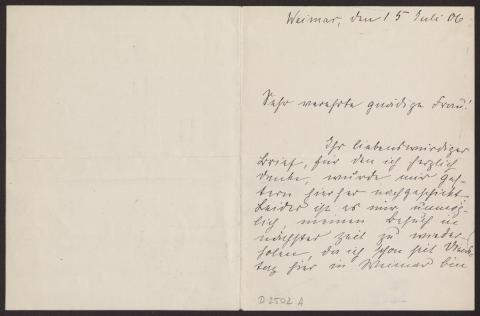 Weimar, den 15 Juli 06.
Sehr verehrte gnädige Frau!
Ihr liebenswürdiger
Brief, für den ich herzlich
danke, wurde mir ges-
tern hierher nachgeschickt.
Leider ist es mir unmög-
lich meinen Besuch in
nächster Zeit zu wieder-
holen, da ich schon seit
tag hier in Weimar bin
D 2502 A